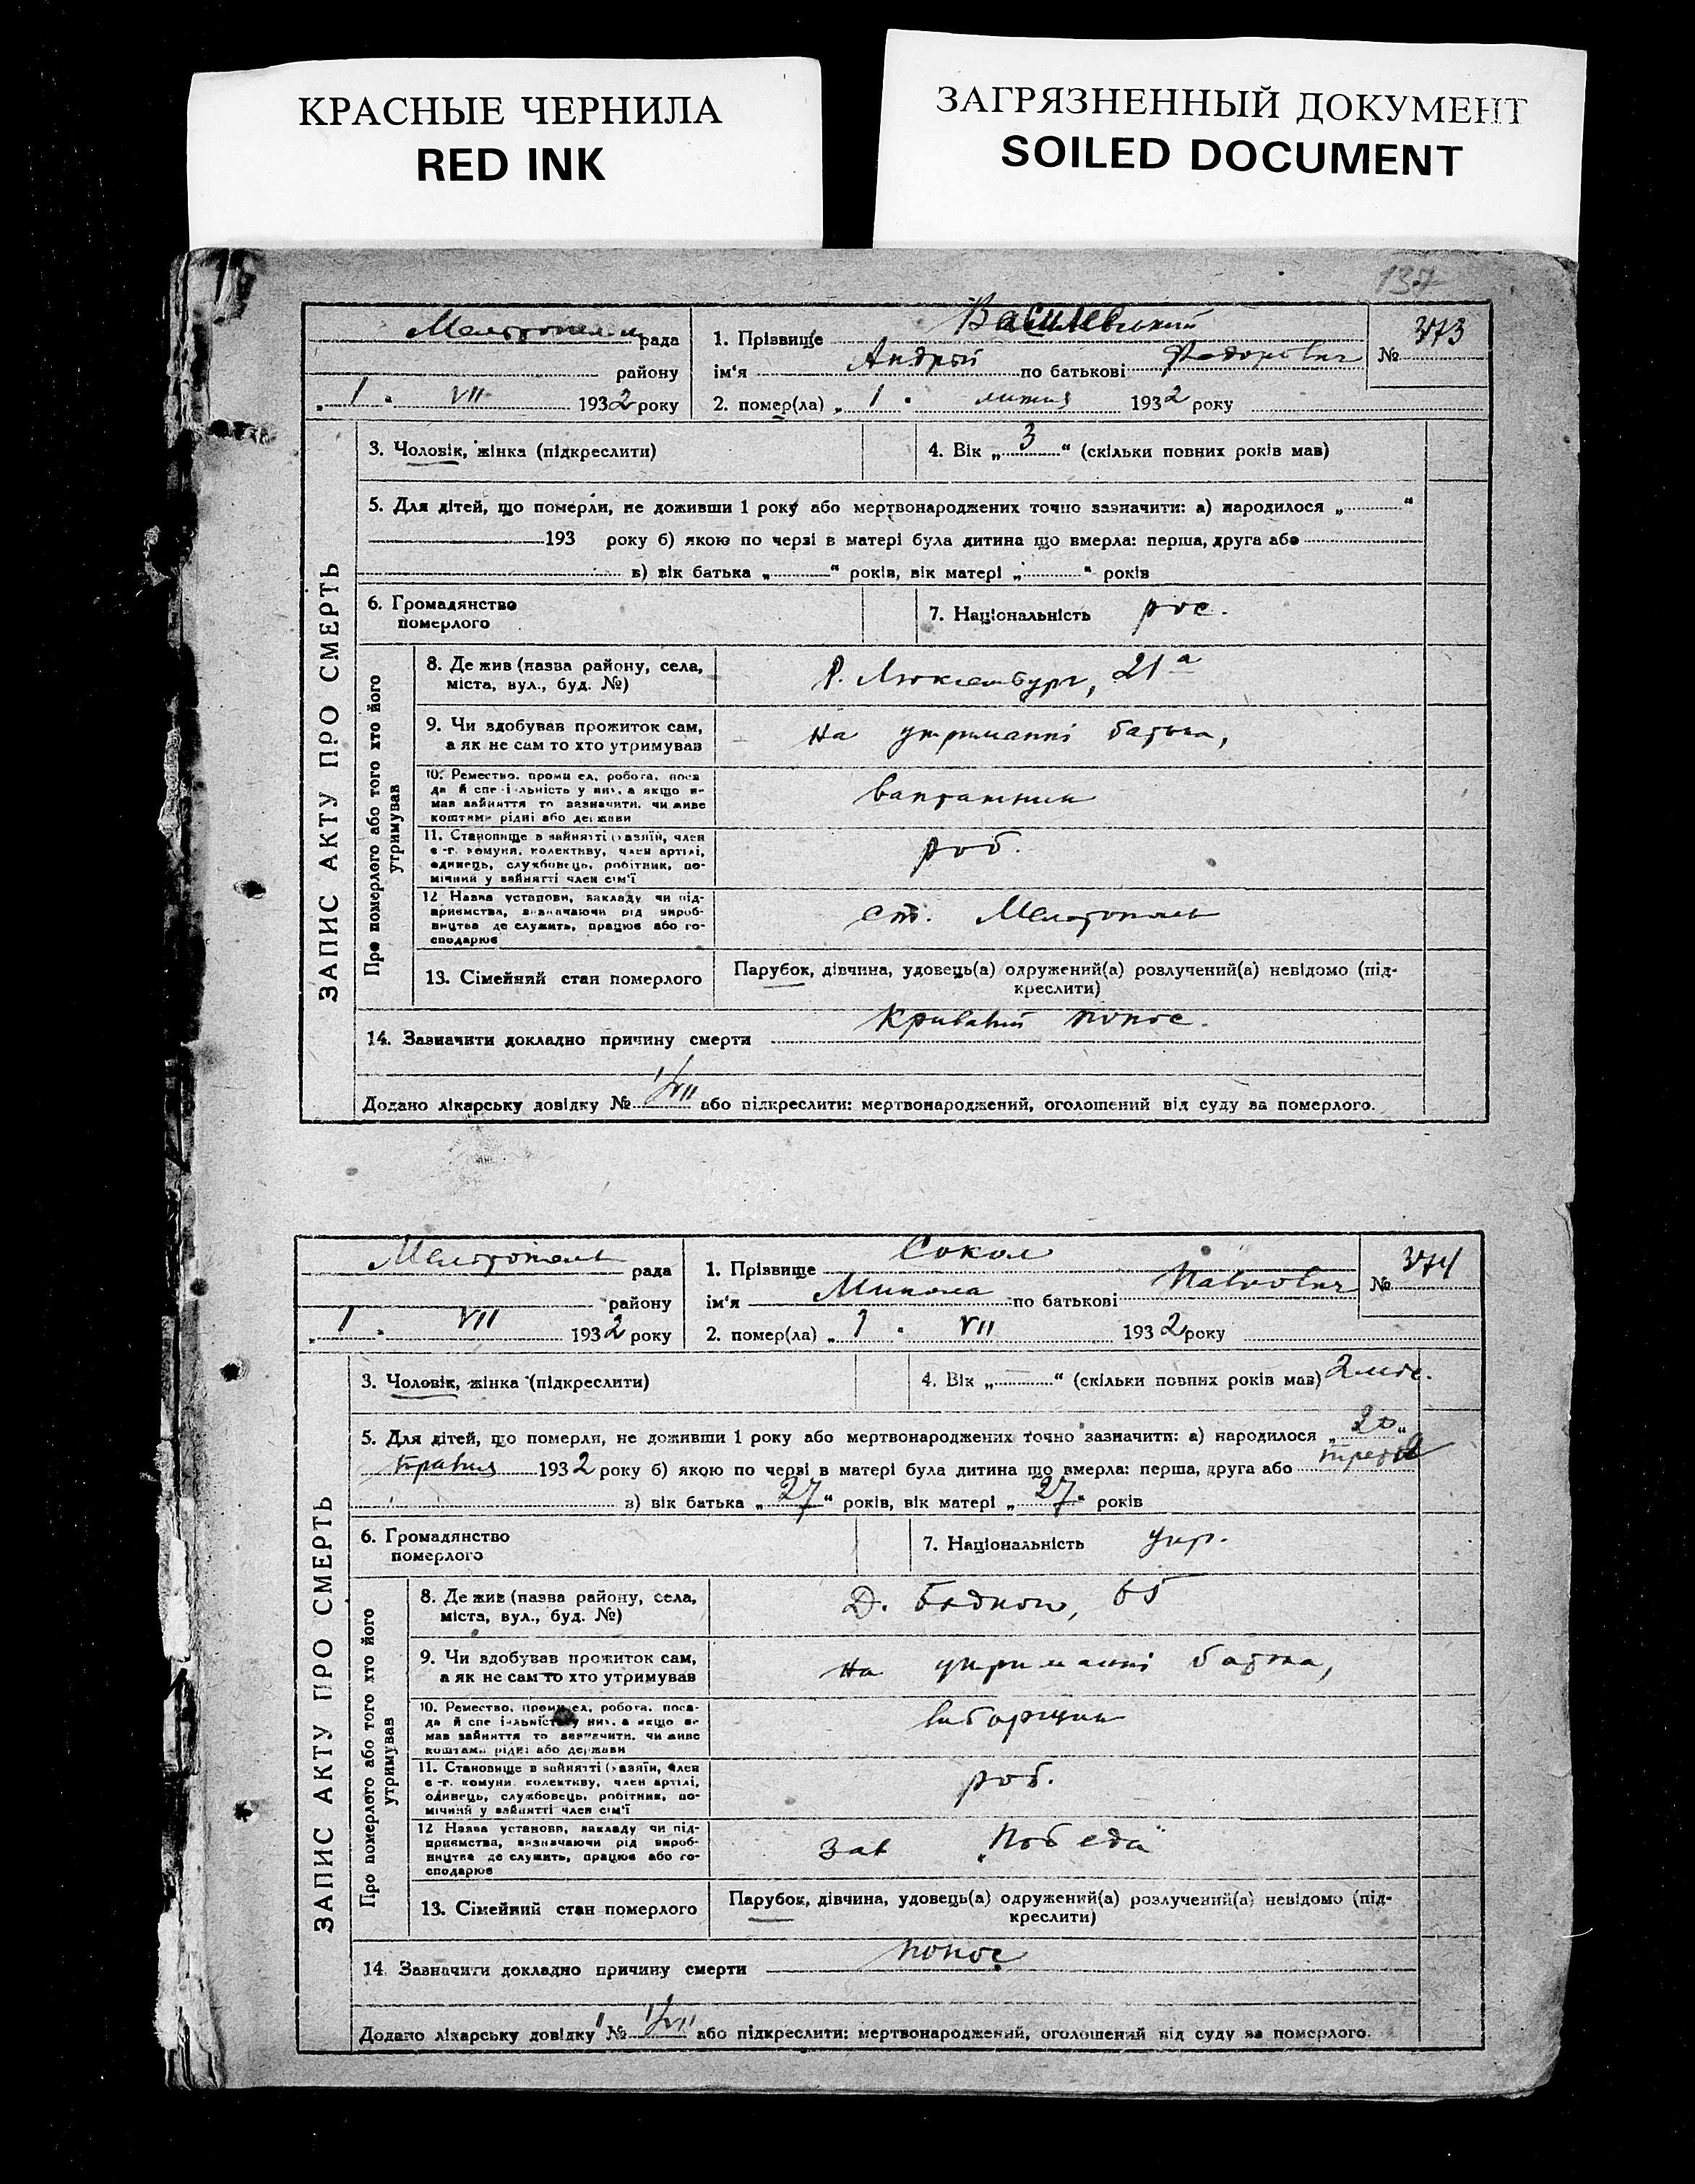 КРАСНЫЕ ЧЕРНИЛА
RED INK
ЗАГРЯЗНЕННЫЙ ДОКУМЕНТ
SOILED DOCUMENT
137
рада
району
„ 1 “ VII 1932 року
1. Прізвище Василевський
ім‘я Андрій по батькові Федорович
2. помер(ла) „ 1 “ липня 1932 року
№ 373
ЗАПИС АКТУ ПРО СМЕРТЬ
3. Чоловік, жінка (підкреслити)
4. Вік „ 3 “ (скільки повних років мав)
5. Для дітей, що померли, не доживши 1 року або мертвонароджених точно зазначити: а) народилося „ “
193 року б) якою по черзі в матері була дитина що вмерла: перша, друга або
в) вік батька „ “ років, вік матері „ “ років
6. Громадянство
померлого
7. Національність рос.
Про померлого або того хто його
утримував
8. Де жив (назва району, села,
міста, вул., буд. №)
Р. Люксембург, 21а
9. Чи здобував прожиток сам,
а як не сам то хто утримував
на утриманні батька,
10. Ремество, промисел, робота, поса-
да й спеціяльність у них, а якщо не
мав зайняття то зазначити, чи живе
коштами рідні або держави
вантажник
11. Становище в зайнятті (хазяїн, член
с.-г. комуни, колективу, член артілі,
одинець, службовець, робітник, по-
мічний у зайнятті член сім‘ї
роб.
12 Назва установи, закладу чи під-
приємства, визначаючи рід вироб-
ництва де служить, працює або го-
сподарює
ст. Мелітополь
13. Сімейний стан померлого
Парубок, дівчина, удовець(а) одружений(а) розлучений(а) невідомо (під-
креслити)
14. Зазначити докладно причину смерти Кривавий понос.
Додано лікарську довідку № 1/VII або підкреслити: мертвонароджений, оголошений від суду за померлого.
Мелітополь рада
району
„ 1 “ VII 1932 року
1. Прізвище Сокол
ім‘я Микола по батькові Павлович
2. помер(ла) „ 1 “ VII 1932 року
№ 374
ЗАПИС АКТУ ПРО СМЕРТЬ
3. Чоловік, жінка (підкреслити)
4. Вік „ — “ (скільки повних років мав) 2 міс.
5. Для дітей, що померли, не доживши 1 року або мертвонароджених точно зазначити: а) народилося „ 20 “
травня 1932 року б) якою по черзі в матері була дитина що вмерла: перша, друга або третя
в) вік батька „ 27 “ років, вік матері „ 27 “ років
6. Громадянство
померлого
7. Національність укр.
Про померлого або того хто його
утримував
8. Де жив (назва району, села,
міста, вул., буд. №)
Д. Бедного, 65
9. Чи здобував прожиток сам,
а як не сам то хто утримував
на утриманні батька,
10. Ремество, промисел, робота, поса-
да й спеціяльність у них, а якщо не
мав зайняття то зазначити, чи живе
коштами рідні або держави
11. Становище в зайнятті (хазяїн, член
с.-г. комуни, колективу, член артілі,
одинець, службовець, робітник, по-
мічний у зайнятті член сім‘ї
роб.
12 Назва установи, закладу чи під-
приємства, визначаючи рід вироб-
ництва де служить, працює або го-
сподарює
зав „Победа“
13. Сімейний стан померлого
Парубок, дівчина, удовець(а) одружений(а) розлучений(а) невідомо (під-
креслити)
14. Зазначити докладно причину смерти понос
Додано лікарську довідку № 1/VII або підкреслити: мертвонароджений, оголошений від суду за померлого.